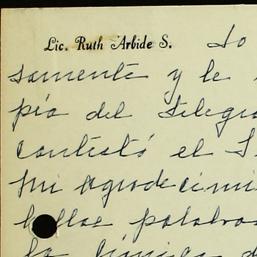 Lic. Ruth Arbide S. lo
samente y le
pia del telegra
contestó el S
mi agradecimi
bellas palabras
la única d